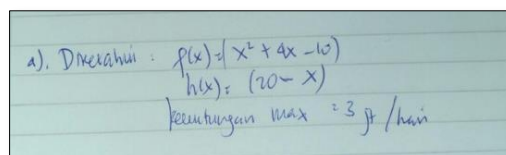 a). Diketahui : f(x)=(x² + 4x - 10)
h(x) = (20 - x)
keuntungan max = 3 jt / hari